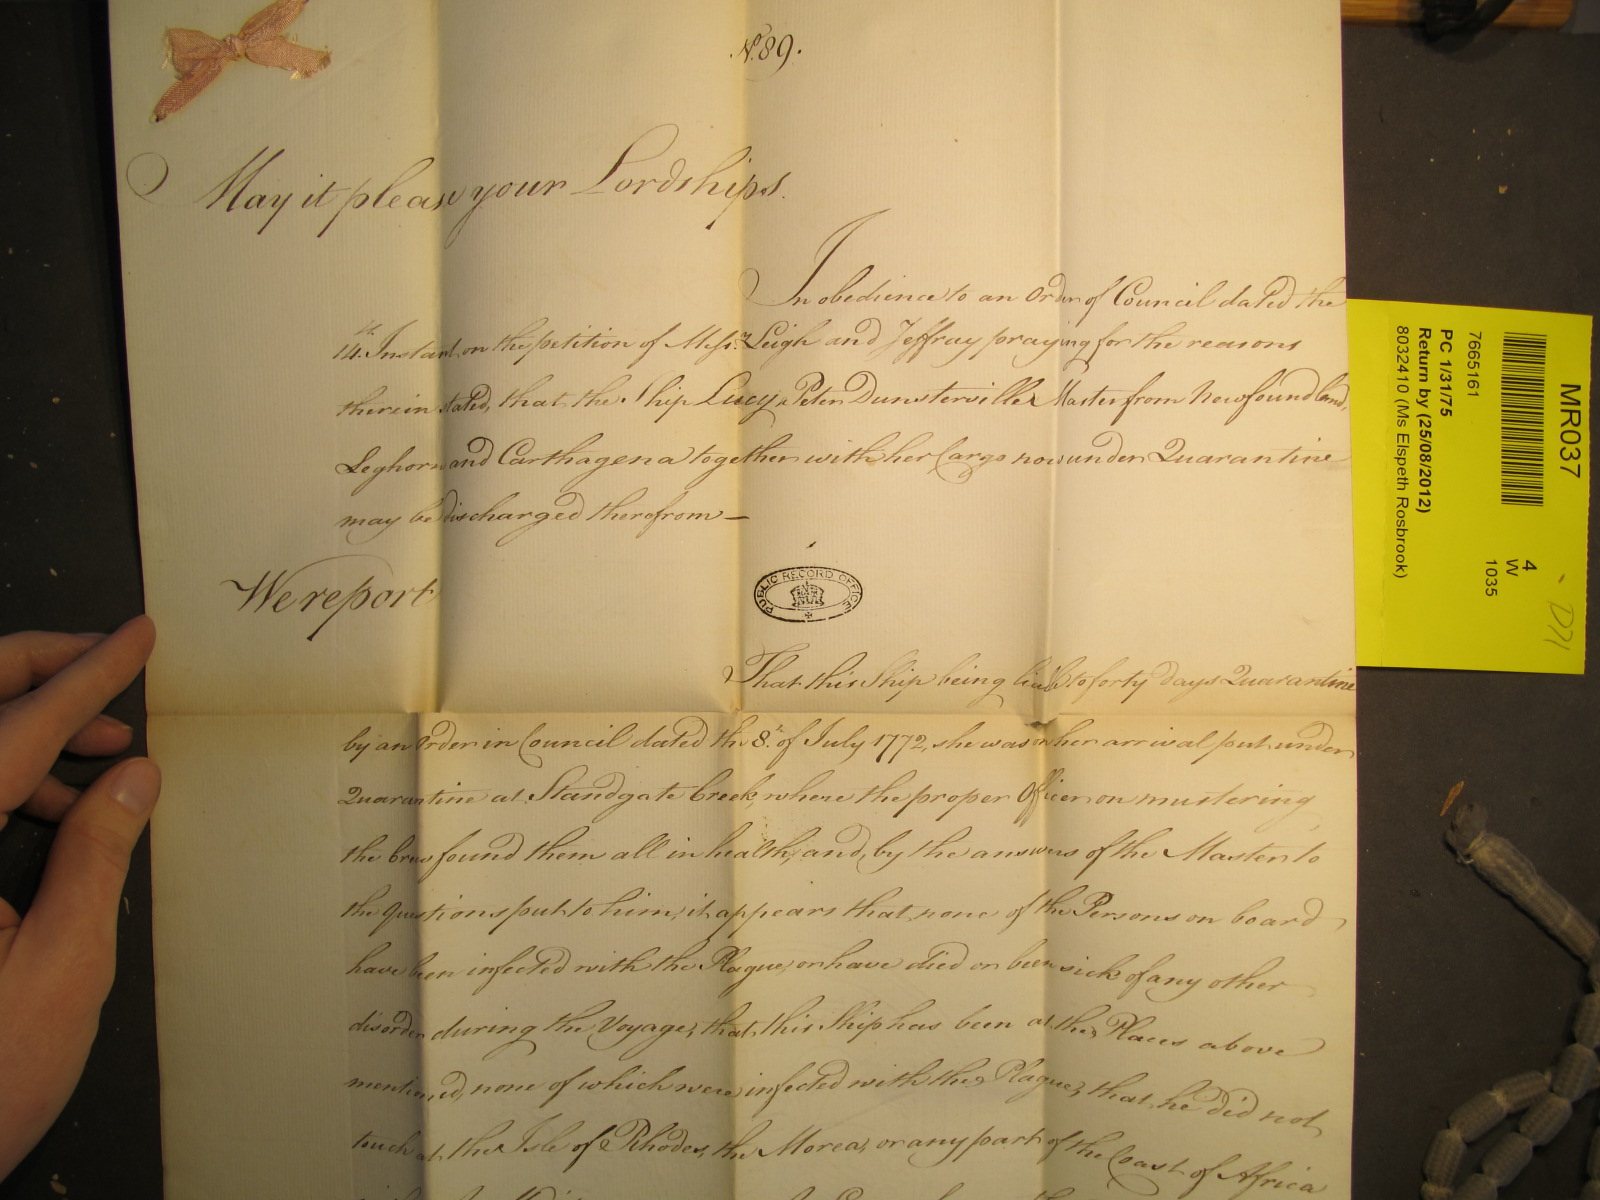 No. 89.
May it please your Lordships.
In obedience to an Order of Council dated the
14th. Instant on the petition of Messrs. Leigh and Jeffray praying for the reasons
therein stated, that the Ship Lucy, Peter Dunsterville Master from Newfoundland,
Leghorn and Carthagena together with her Cargo now under Quarantine
may be discharged therefrom —
We report
PUBLIC RECORD OFFICE
That this Ship being liable to forty days Quarantine
by an Order in Council dated the 8th. of July 1772, she was on her arrival put under
Quarantine at Standgate Creek, where the proper Officer on mustering
the Crew found them all in health; and, by the answers of the Master to
the questions put to him, it appears that none of the Persons on board
have been infected with the Plague, or have died or been sick of any other
disorder during the Voyage, that this Ship has been at the Places above
mentioned, none of which were infected with the Plague, that he did not
touch at the Isle of Rhodes, the Morea, or any part of the Coast of Africa
MR037
4
W
1035
7665161
PC 1/31/75
Return by (25/08/2012)
8032410 (Ms Elspeth Rosbrook)
D71